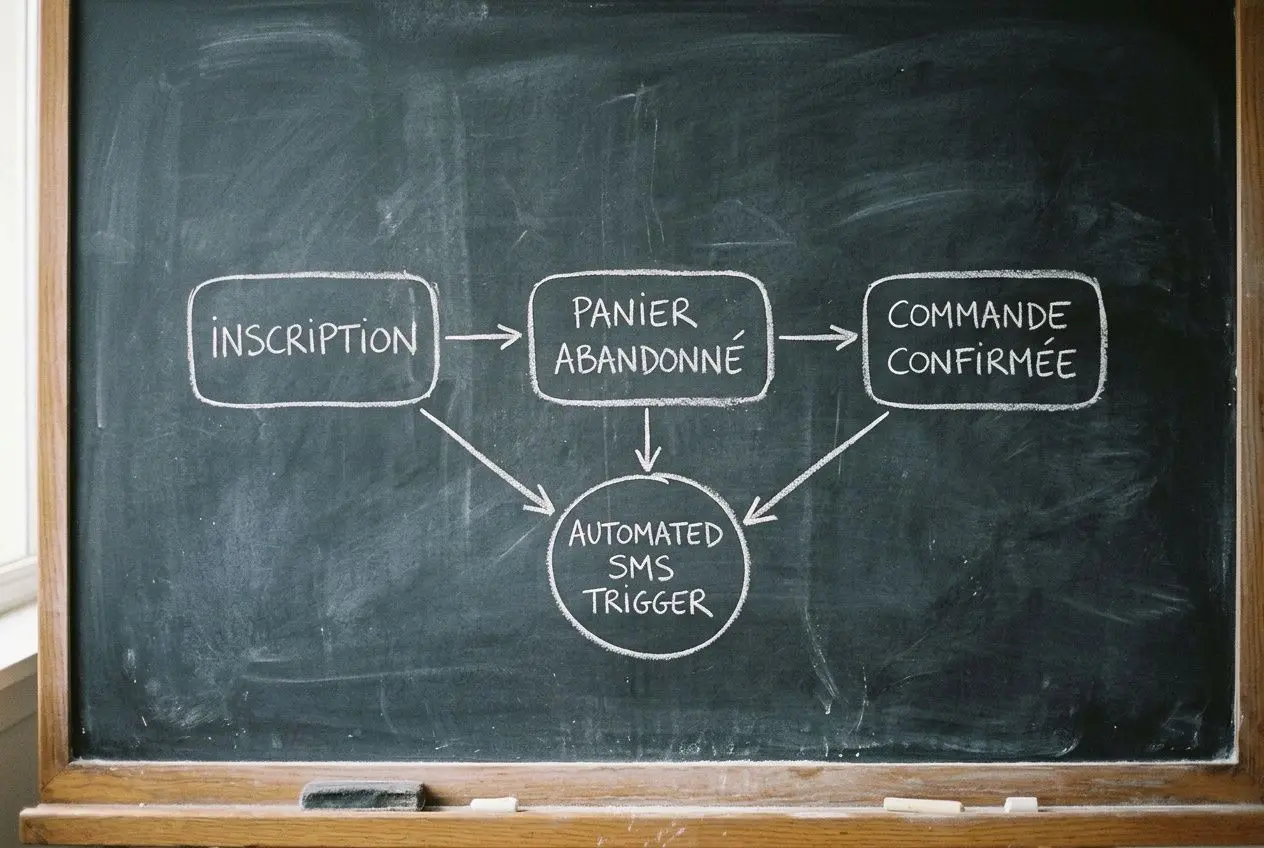 INSCRIPTION
PANIER
ABANDONNÉ
COMMANDE
CONFIRMÉE
AUTOMATED
SMS
TRIGGER